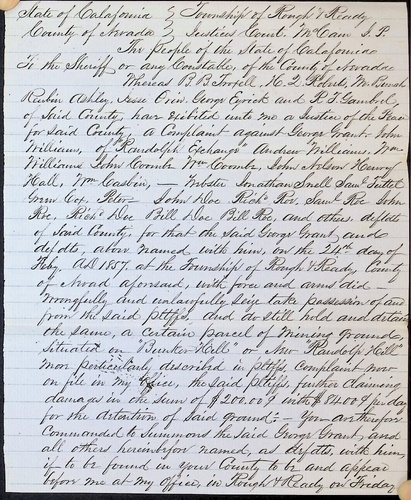 State of Calafornia } Township of Rough & Ready
County of Nevada } Justices Court. McCan J. P.
The People of the State of Calafornia
To the Sheriff or any Constable, of the County of Nevada
Whereas B. B. Troxell, H. Q. Roberts, Wm
Rubin Ashley, Jesse George and R. S. Gambrel,
of Said County, have exibited unto me a Justice of the Peace
for Said County, a Complaint against George Grant John
Williams, of "Randolph Exchange" Andrew Williams, Wm
Williams John Coombs Wm Coombs, John Nelson Henry
Hall, Wm Casbin, — Webster Jonathan Snell Saml Tuttel
Cox, Peter — John Doe Richd Roe, Saml Roe John
Roe, Richd Doe Bill Doe Bill Roe, and others defdts
of Said County, for that the Said George Grant, and
defdts, above named with him, on the 24th day of
Feby. A.D 1857, at the Township of Rough & Ready, County
of aforsaid, with force and arms did —
wrongfully and unlawfully, seize take possession of and
from the said pltffs, and do still hold and detain
the same, a certain parcel of mining ground,
situated on "Bunker Hill" or New "Randolph Hill"
more particularly described in pltffs, complaint now
on file in my office, the said pltffs, further claiming
damages in the sum of $200.00 with $ per day
for the detention of said ground; — You are therefor
Commanded to Summons the Said George Grant, and
all others hereinbefor named, as defdts, with him,
if to be found in your County to be and appear
before me at my office, in Rough & Ready on Friday